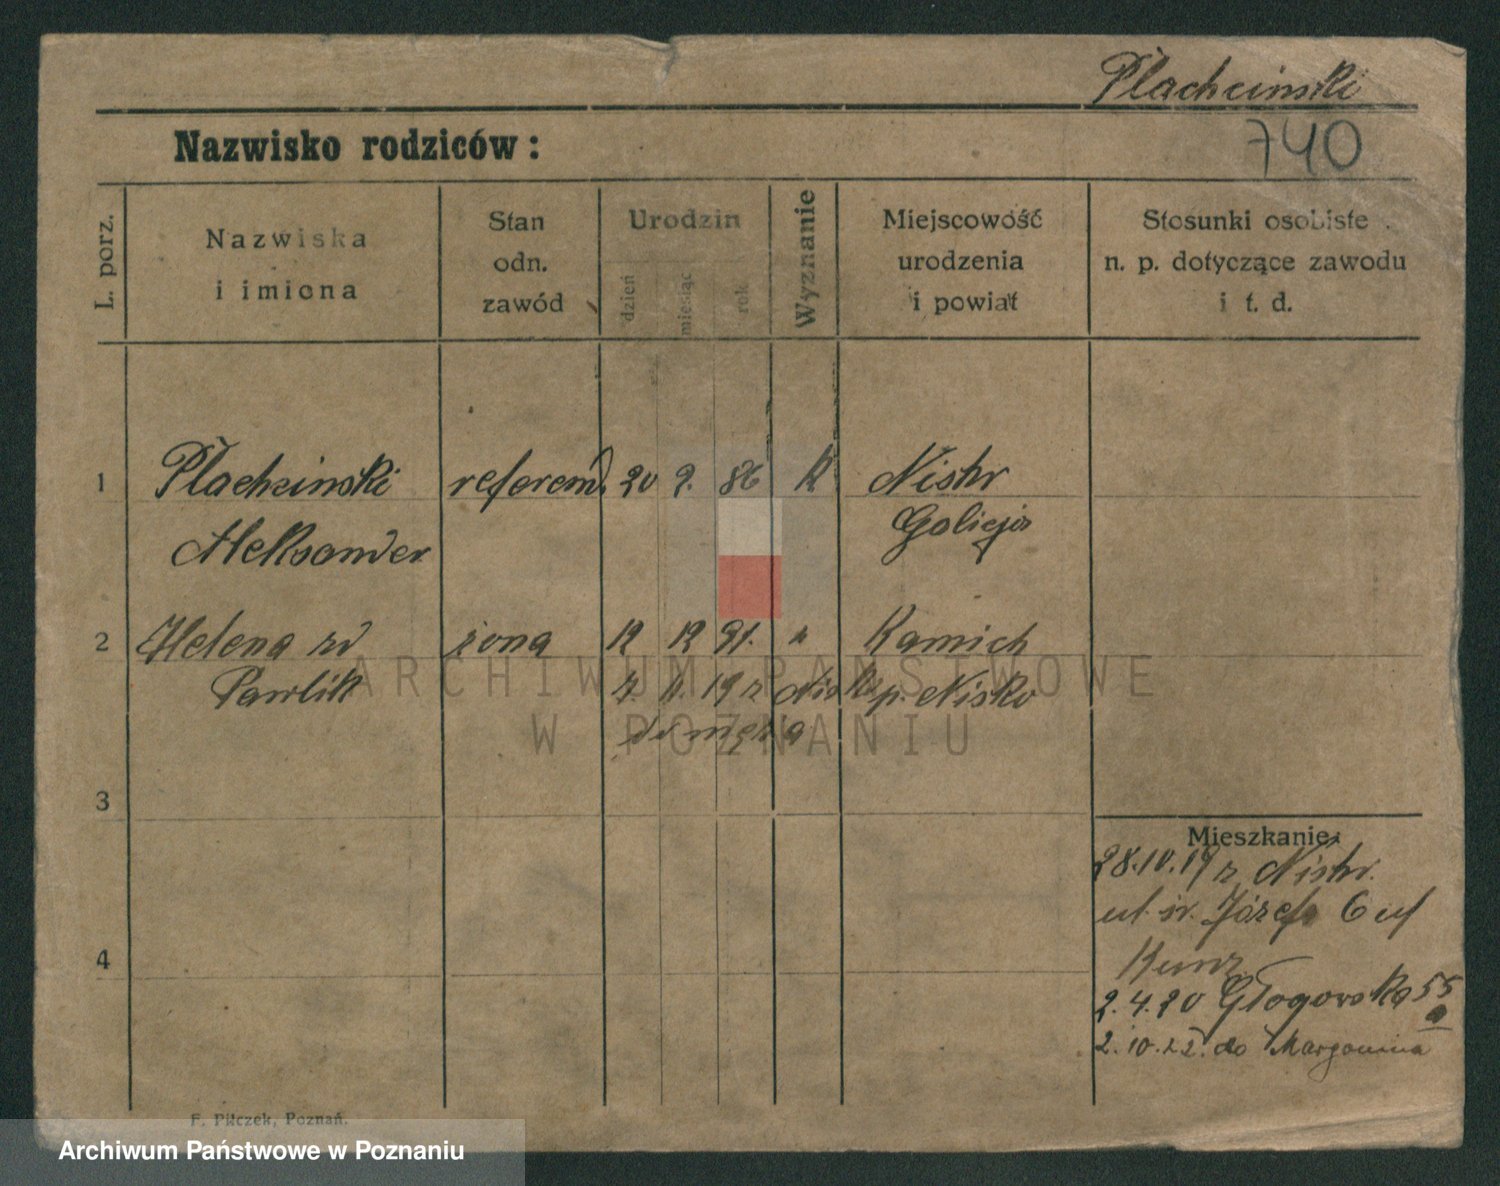 Plachcinski
740
Nazwisko rodziców:
L. porz.
Nazwiska
i imiona
Stan
odn.
zawód
Urodzin
dzień
miesiąc
rok
Wyznanie
Miejscowość
urodzenia
i powiat
Stosunki osobiste
n. p. dotyczące zawodu
i t. d.
1 Plachcinski referend. 20 2. 86 K
Aleksander Galicja
2 Helena żona 12 12 91. "
Pawlik 19 r p. Nisko
do męża
3
4
Mieszkanie:
28.10.19 r
ul. św. Józefa 6 uf
Kunz
2.4.20 Głogowska 55
a
2.10.22. do Margonina
F. Pilczek, Poznań.
ARCHIWUM PAŃSTWOWE
W POZNANIU
Archiwum Państwowe w Poznaniu